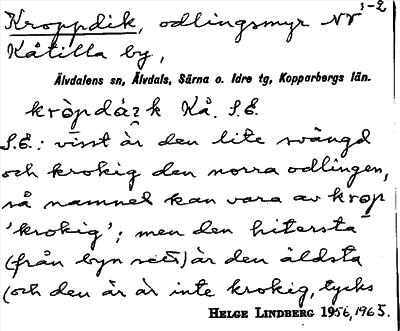 1-2
Kroppdik, odlingsmyr NV
Kåtilla by,
Älvdalens sn, Älvdals, Särna o. Idre tg, Kopparbergs län.
Kå. S.E.
S.E.: visst är den lite svängd
och krokig den norra odlingen,
så namnet kan vara av krop
'krokig'; men den hitersta
(från byn sett) är den äldsta
(och den är är inte krokig, tycks
HELGE LINDBERG 1956, 1965.